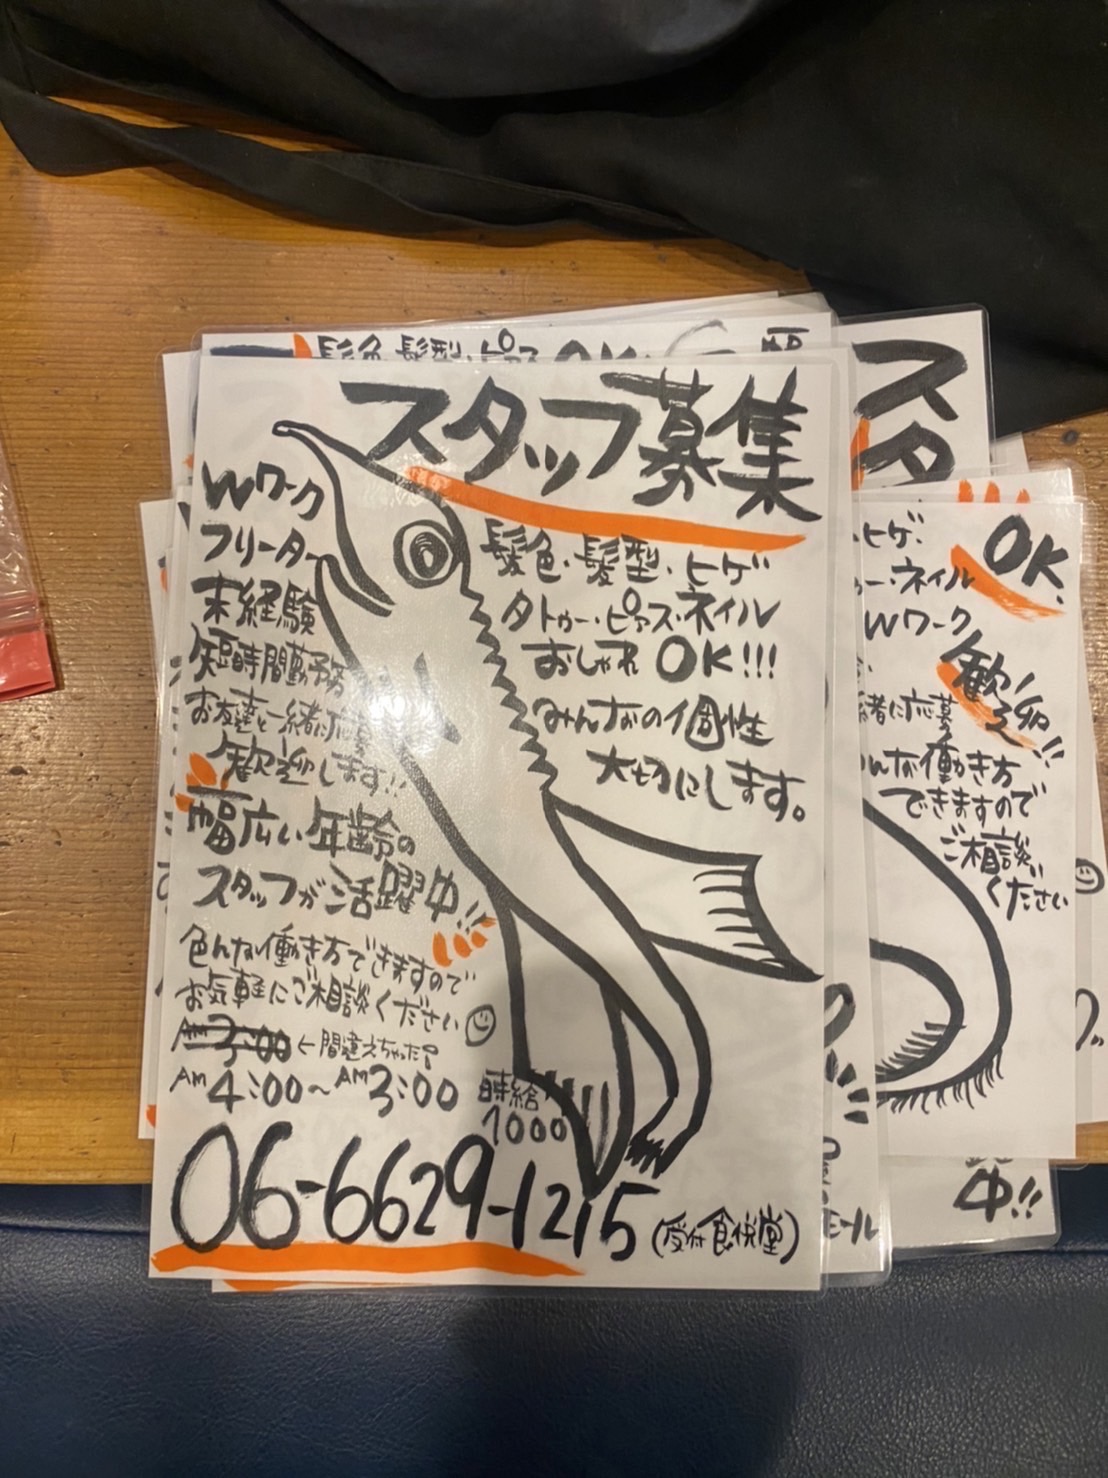 スタッフ募集
Wワーク
フリーター
未経験
短時間勤務
お友達と一緒に応募
歓迎します!!
幅広い年齢の
スタッフが活躍中!!
色んな働き方できますので
お気軽にご相談ください
AM3:00 ←間違えちゃった
AM4:00〜AM3:00
髪色・髪型・ヒゲ
タトゥー・ピアス・ネイル
おしゃれ OK!!!
みんなの個性
大切にします。
時給
1000
06-6629-1215
(受付 食悦堂)
髪色・髪型・ピアス OK
スタ
ヒゲ・
ー・ネイル
OK.
Wワーク
歓迎!!
緒に応募
んな働き方
できますので
ご相談
ください
中!!